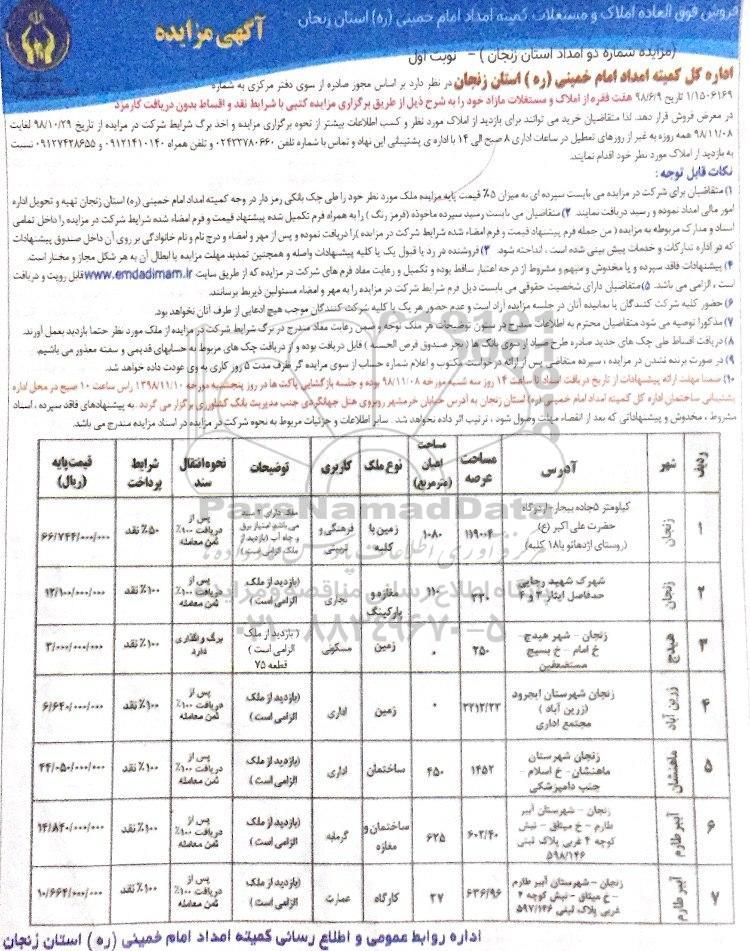 فروش فوق العاده املاک و مستغلات کمیته امداد امام خمینی (ره) استان زنجان
آگهی مزایده
(مزایده شماره دو امداد استان زنجان) - نوبت اول
اداره کل کمیته امداد امام خمینی (ره) استان زنجان در نظر دارد بر اساس مجوز صادره از سوی دفتر مرکزی به شماره
۱/۱۵۰۶۱۶۹ تاریخ ۹۸/۶/۹ هفت فقره از املاک و مستغلات مازاد خود را به شرح ذیل از طریق برگزاری مزایده کتبی با شرایط نقد و اقساط بدون دریافت کارمزد
در معرض فروش قرار دهد. لذا متقاضیان خرید می توانند برای بازدید از املاک مورد نظر و کسب اطلاعات بیشتر از نحوه برگزاری مزایده و اخذ برگ شرایط شرکت در مزایده از تاریخ ۹۸/۱۰/۲۹ لغایت
۹۸/۱۱/۰۸ همه روزه به غیر از روزهای تعطیل در ساعات اداری ۸ صبح الی ۱۴ با اداره ی پشتیبانی این نهاد و تماس با شماره تلفن ۰۲۴۳۳۷۸۰۶۶۰ و تلفن همراه ۰۹۱۲۱۴۱۰۱۴۰ و ۰۹۱۲۷۴۲۸۶۵۵ نسبت
به بازدید از املاک مورد نظر خود اقدام نمایند.
نکات قابل توجه :
۱) متقاضیان برای شرکت در مزایده می بایست سپرده ای به میزان ۵٪ قیمت پایه مزایده ملک مورد نظر خود را طی چک بانکی رمز دار در وجه کمیته امداد امام خمینی (ره) استان زنجان تهیه و تحویل اداره
امور مالی امداد نموده و رسید دریافت نمایند ۲) متقاضیان می بایست رسید سپرده ماخوذه (فرمز رنگ) را به همراه فرم تکمیل شده پیشنهاد قیمت و فرم امضاء شده شرایط شرکت در مزایده را داخل تمامی
اسناد و مدارک مربوطه به مزایده (من جمله فرم پیشنهاد قیمت و فرم امضاء شده شرایط شرکت در مزایده) را دریافت نموده و پس از مهر و امضاء و درج نام و نام خانوادگی بر روی آن داخل صندوق پیشنهادات
که در اداره تدارکات و خدمات پیش بینی شده است ، انداخته شود. ۳) فروشنده در رد یا قبول یک یا کلیه پیشنهادات واصله و همچنین تمدید مهلت مزایده یا ابطال آن به هر شکل مجاز و مختار است.
۴) پیشنهادات فاقد سپرده و یا مخدوش و مبهم و مشروط از درجه اعتبار ساقط بوده و تکمیل و رعایت مفاد فرم های شرکت در مزایده که از طریق سایت www.emdadimam.ir قابل رویت و دریافت
است ، الزامی می باشد. ۵) متقاضیان دارای شخصیت حقوقی می بایست ذیل فرم شرایط شرکت در مزایده را به مهر و امضاء مسئولین ذیربط برسانند.
۶) حضور کلیه شرکت کنندگان یا نماینده آنان در جلسه مزایده آزاد است و عدم حضور هر یک یا کلیه شرکت کنندگان موجب هیچ ادعایی از طرف آنان نخواهد بود.
۷) مذکورا توصیه می شود متقاضیان محترم به اطلاعات مندرج در ستون توضیحات هر ملک توجه و ضمن رعایت مفاد مندرج در برگ شرایط شرکت در مزایده از ملک مورد نظر حتما بازدید بعمل آورند.
۸) دریافت اقساط طی چک های جدید صادره طرح صیاد از سوی بانک ها (بجز صندوق قرض الحسنه) قابل دریافت بوده و از دریافت چک های مربوط به حسابهای قدیمی و سفته معذور می باشیم.
۹) در صورت برنده نشدن در مزایده ، سپرده متقاضی پس از ارائه درخواست مکتوب و اعلام شماره حساب از سوی مزایده گر ظرف مدت ۵ روز کاری به وی عودت داده خواهد شد.
۱۰) ضمنا مهلت ارائه پیشنهادات از تاریخ دریافت اسناد تا ساعت ۱۴ روز سه شنبه مورخه ۹۸/۱۱/۰۸ بوده و جلسه بازگشایی پاکت ها در روز پنجشنبه مورخه ۱۳۹۸/۱۱/۱۰ راس ساعت ۱۰ صبح در محل اداره
پشتیبانی ساختمان اداره کل کمیته امداد امام خمینی (ره) استان زنجان به آدرس خیابان خرمشهر روبروی هتل جهانگردی جنب مدیریت بانک کشاورزی برگزار می گردد. به پیشنهادهای فاقد سپرده ، اسناد
مشروط ، مخدوش و پیشنهاداتی که بعد از انقضاء مهلت وصول شود ، ترتیب اثر داده نخواهد شد. سایر اطلاعات و جزئیات مربوط به نحوه شرکت در مزایده در اسناد مزایده مندرج می باشد.
ردیف شهر آدرس مساحت عرصه مساحت اعیان (مترمربع) نوع ملک کاربری توضیحات نحوه انتقال سند شرایط پرداخت قیمت پایه (ریال)
۱ زنجان کیلومتر ۵ جاده بیجار - اردوگاه حضرت علی اکبر (ع) (روستای اژدهاتو با ۱۸ کلبه) ۱۱۹۰۰۴ ۱۰۸۰ زمین با کلبه فرهنگی و تربیتی ملک دارای ۲ سند می باشد امتیاز برق و چاه آب (بازدید از ملک الزامی است) پس از دریافت ۱۰۰٪ ثمن معامله ۵۰٪ نقد ۶۶/۷۴۴/۰۰۰/۰۰۰
۲ زنجان شهرک شهید رجایی حدفاصل ایثار ۳ و ۴ ۲۲۰ ۱۱۰ مغازه و پارکینگ تجاری (بازدید از ملک الزامی است) پس از دریافت ۱۰۰٪ ثمن معامله ۱۰۰٪ نقد ۱۲/۱۰۰/۰۰۰/۰۰۰
۳ هیدج زنجان - شهر هیدج - خ امام - خ بسیج مستضعفین ۲۵۰ ۰ زمین مسکونی (بازدید از ملک الزامی است) قطعه ۷۵ برگ واگذاری دارد ۱۰۰٪ نقد ۲/۰۰۰/۰۰۰/۰۰۰
۴ زرین آباد زنجان شهرستان ایجرود (زرین آباد) مجتمع اداری ۲۲۱۳/۲۲ ۰ زمین اداری (بازدید از ملک الزامی است) پس از دریافت ۱۰۰٪ ثمن معامله ۱۰۰٪ نقد ۶/۶۴۰/۰۰۰/۰۰۰
۵ ماهنشان زنجان شهرستان ماهنشان - خ اسلام - جنب دامپزشکی ۱۴۵۲ ۴۵۰ ساختمان اداری (بازدید از ملک الزامی است) پس از دریافت ۱۰۰٪ ثمن معامله ۱۰۰٪ نقد ۴۴/۰۵۰/۰۰۰/۰۰۰
۶ آببر طارم زنجان - شهرستان آببر طارم - خ میثاق - نبش کوچه ۴ غربی پلاک ثبتی ۵۹۸/۱۴۶ ۶۰۲/۴۰ ۶۲۵ ساختمان و مغازه گرمابه (بازدید از ملک الزامی است) پس از دریافت ۱۰۰٪ ثمن معامله ۱۰۰٪ نقد ۱۴/۸۴۰/۰۰۰/۰۰۰
۷ آببر طارم زنجان - شهرستان آببر طارم - خ میثاق - نبش کوچه ۴ غربی پلاک ثبتی ۵۹۷/۱۴۶ ۶۳۶/۹۶ ۲۷ کارگاه عمارت (بازدید از ملک الزامی است) پس از دریافت ۱۰۰٪ ثمن معامله ۱۰۰٪ نقد ۱۰/۶۶۴/۰۰۰/۰۰۰
ParsNamadData
پایگاه اطلاع رسانی مناقصه و مزایده
۰۲۱-۸۸۳۴۹۶۷۰-۵
اداره روابط عمومی و اطلاع رسانی کمیته امداد امام خمینی (ره) استان زنجان